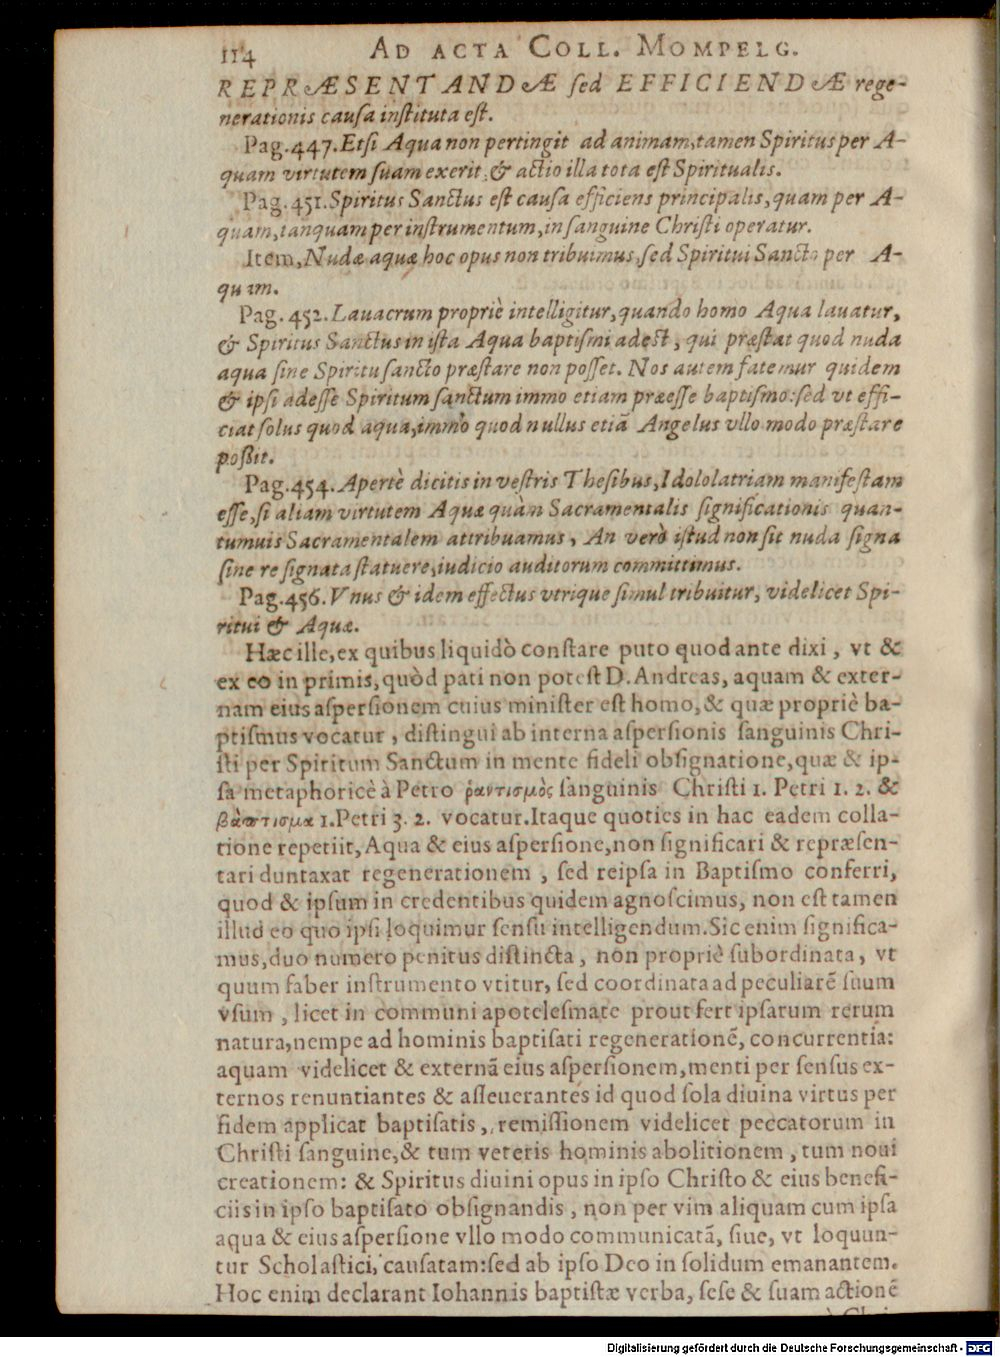 114 AD ACTA COLL. MOMPELG.
REPRÆSENTANDÆ sed EFFICIENDÆ rege-
nerationis causa instituta est.
Pag. 447. Etsi Aqua non pertingit ad animam, tamen Spiritus per A-
quam virtutem suam exerit, & actio illa tota est Spiritualis.
Pag. 451. Spiritus Sanctus est causa efficiens principalis, quam per A-
quam, tanquam per instrumentum, in sanguine Christi operatur.
Item, Nudæ aquæ hoc opus non tribuimus, sed Spiritui Sancto per A-
quam.
Pag. 452. Lauacrum propriè intelligitur, quando homo Aqua lauatur,
& Spiritus Sanctus in ista Aqua baptismi adest, qui præstat quod nuda
aqua sine Spiritu sancto præstare non posset. Nos autem fatemur quidem
& ipsi adesse Spiritum sanctum immo etiam præesse baptismo: sed vt effi-
ciat solus quod aqua, immò quod nullus etiā Angelus vllo modo præstare
poßit.
Pag. 454. Apertè dicitis in vestris Thesibus, Idololatriam manifestam
esse, si aliam virtutem Aquæ quàm Sacramentalis significationis quan-
tumuis Sacramentalem attribuamus, An verò istud non sit nuda signa
sine re signata statuere, iudicio auditorum committimus.
Pag. 456. Vnus & idem effectus vtrique simul tribuitur, videlicet Spi-
ritui & Aquæ.
Hæc ille, ex quibus liquidò constare puto quod ante dixi, vt &
ex eo in primis, quòd pati non potest D. Andreas, aquam & exter-
nam eius aspersionem cuius minister est homo, & quæ propriè ba-
ptismus vocatur, distingui ab interna aspersionis sanguinis Chri-
sti per Spiritum Sanctum in mente fideli obsignatione, quæ & ip-
sa metaphoricè à Petro ῥαντισμὸς sanguinis Christi 1. Petri 1. 2. &
βάπτισμα 1. Petri 3. 2. vocatur. Itaque quoties in hac eadem colla-
tione repetiit, Aqua & eius aspersione, non significari & repræsen-
tari duntaxat regenerationem, sed reipsa in Baptismo conferri,
quod & ipsum in credentibus quidem agnoscimus, non est tamen
illud eo quo ipsi loquimur sensu intelligendum. Sic enim significa-
mus, duo numero penitus distincta, non propriè subordinata, vt
quum faber instrumento vtitur, sed coordinata ad peculiarē suum
vsum, licet in communi apotelesmate prout fert ipsarum rerum
natura, nempe ad hominis baptisati regenerationē, concurrentia:
aquam videlicet & externā eius aspersionem, menti per sensus ex-
ternos renuntiantes & asseuerantes id quod sola diuina virtus per
fidem applicat baptisatis, remissionem videlicet peccatorum in
Christi sanguine, & tum veteris hominis abolitionem, tum noui
creationem: & Spiritus diuini opus in ipso Christo & eius benefi-
ciis in ipso baptisato obsignandis, non per vim aliquam cum ipsa
aqua & eius aspersione vllo modo communicatā, siue, vt loquun-
tur Scholastici, causatam: sed ab ipso Deo in solidum emanantem.
Hoc enim declarant Iohannis baptistæ verba, sese & suam actionē
Digitalisierung gefördert durch die Deutsche Forschungsgemeinschaft - DFG